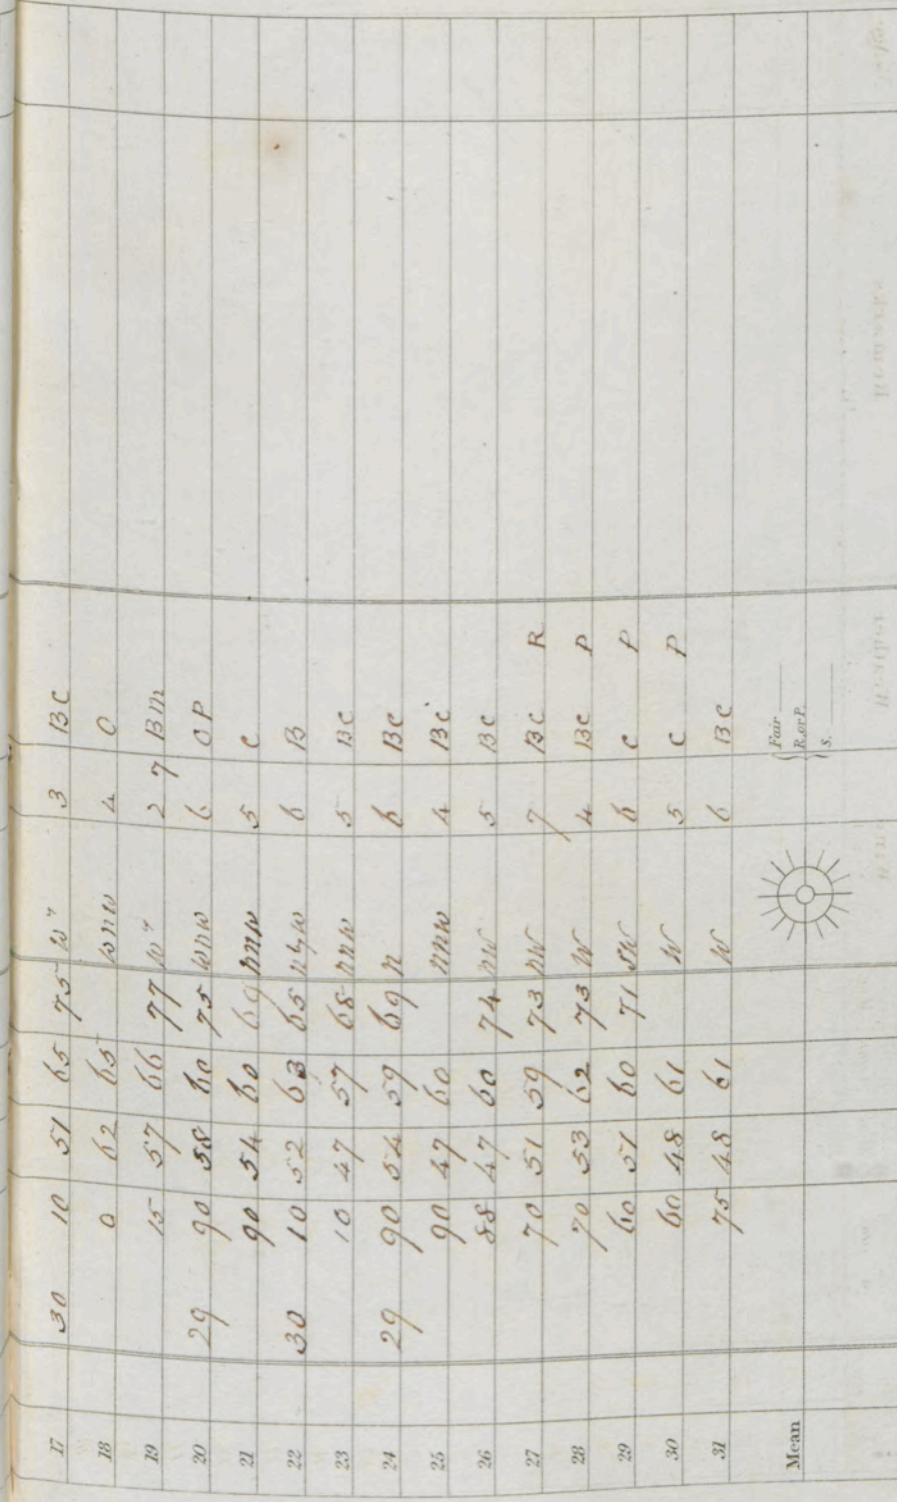 17 30 10 51 65 75 W 3 BC
18 0 62 65 WNW 4 O
19 15 57 66 77 W 2 7 Bm
20 29 90 58 60 75 WNW 6 OP
21 90 54 60 69 NNW 5 C
22 30 10 52 63 65 NyW 6 B
23 10 47 57 68 NNW 5 BC
24 29 90 54 59 69 N 6 BC
25 90 47 60 NNW 4 BC
26 88 47 60 74 NW 5 BC
27 70 51 59 73 NW 7 BC R
28 70 53 62 73 W 4 BC P
29 60 51 60 71 SW 6 C P
30 60 48 61 W 5 C P
31 75 48 61 W 6 BC
Mean
Fair
R. or P.
S.